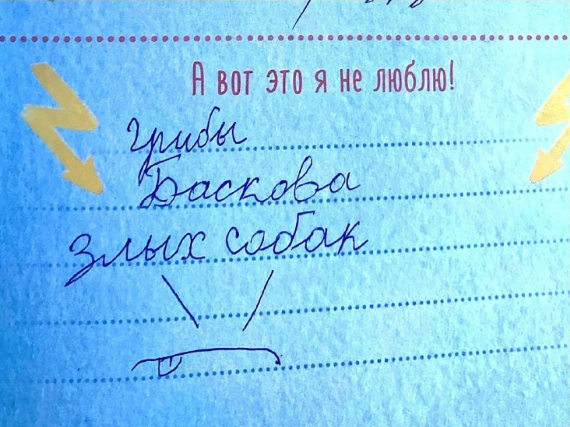 А вот это я не люблю!
грибы
Баскова
злых собак